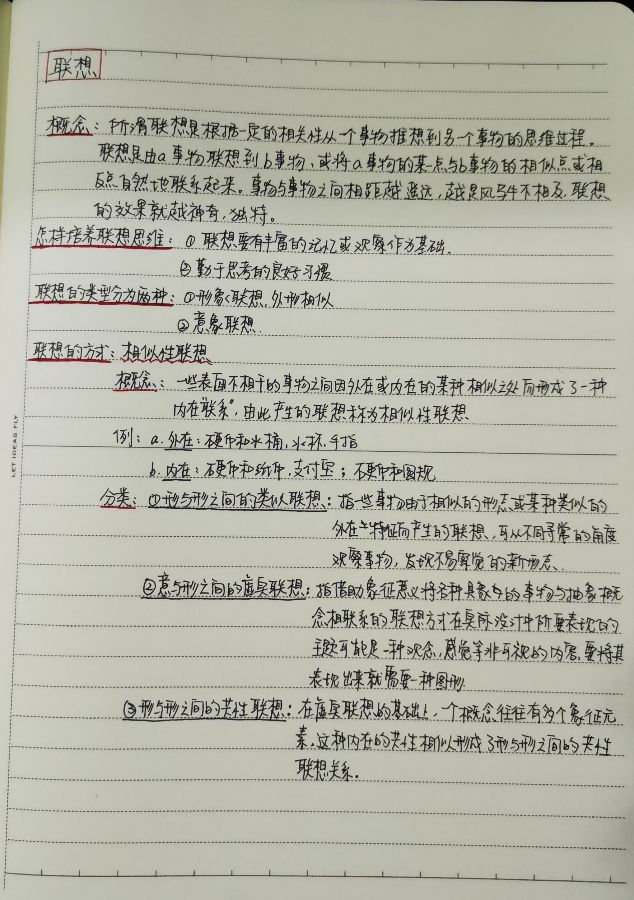 联想
概念：所谓联想是根据一定的相关性从一个事物推想到另一个事物的思维过程。
联想是由a事物联想到b事物，或将a事物的某一点与b事物的相似点或相
反点自然地联系起来。事物与事物之间相距越遥远，越是风马牛不相及，联想
的效果就越神奇，独特。
怎样培养联想思维：①联想要有丰富的记忆或观察作为基础.
②勤于思考的良好习惯
联想的类型分为两种：①形象联想.外形相似
②意象联想.
联想的方式：相似性联想
概念：一些表面不相干的事物之间因外在或内在的某种相似之处而形成了一种
内在"联系"，由此产生的联想称为相似性联想.
例：a.外在：硬币和水桶，水杯，手指
b.内在：硬币和纸币，支付宝；硬币和圆规
分类：①形与形之间的类似联想：指一些事物由于相似的形态或某种类似的
外在特征而产生的联想、可从不同寻常的角度
观察事物，发现不易察觉的新形态、
②意与形之间的虚实联想：指借助象征意义将各种具象的事物与抽象概
念相联系的联想方式在实际设计中所要表现的
主题可能是一种观念，感觉等非可视的内容，要将其
表现出来就需要一种图形.
③形与形之间的共性联想：在虚实联想的基础上，一个概念往往有多个象征元
素，这种内在的共性相似形成了形与形之间的共性
联想关系。
LET IDEAS FLY